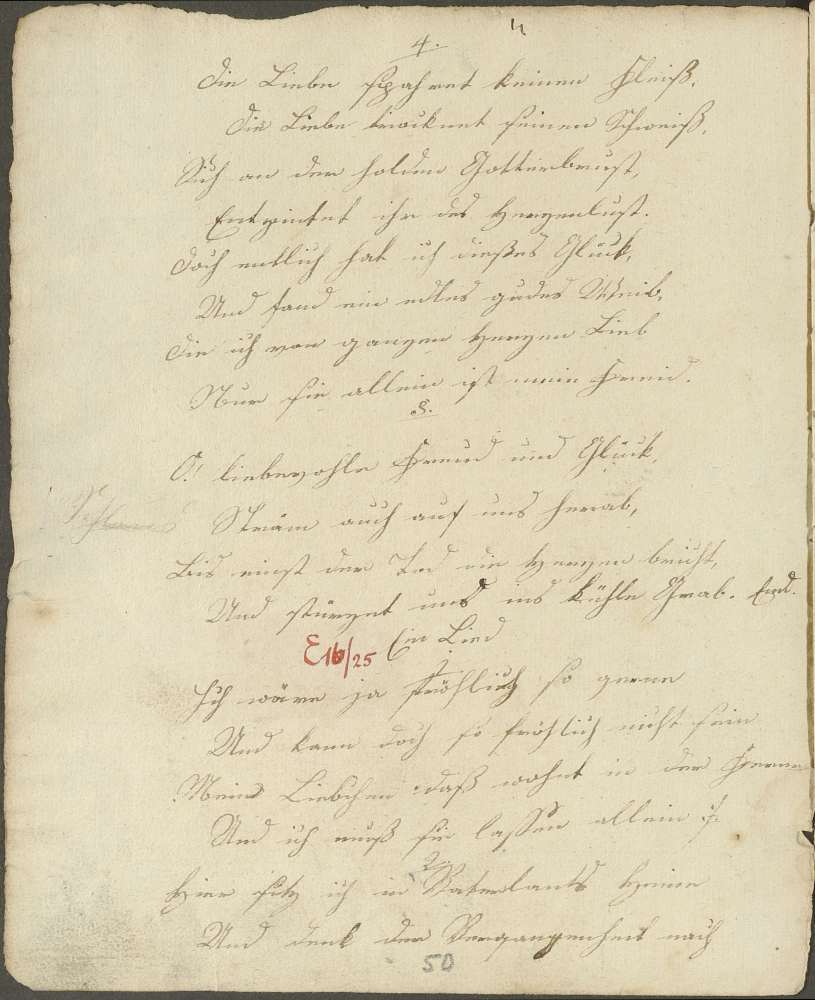 4.
4
Die Liebe spahret keinen Fleiß,
Die Liebe trocknet seinen Schweiß,
Sich an der holden Gotterbrust,
ihr des Herzenlust.
Doch entlich hat ich dießes Glück,
Und fand ein edles gudes Weib,
Die ich von ganzen Herzen Lieb
Nur sie allein ist mein Freid.
5.
O! liebevohle Freud und Glück,
Ström auch auf uns herab,
Bis einst der Tod die Herzen bricht,
Und stürzet uns ins kühle Grab. End.
E16/25 Ein Lied
1
Ich wäre ja fröhlich so gerne
Und kann doch so fröhlich nicht sein
Mein Liebchen daß wohnt in der Ferne
Und ich muß sie lassen allein
2
Hier sitz ich in Vaterlants Haine
Und denk der Vergangenheit nach
50